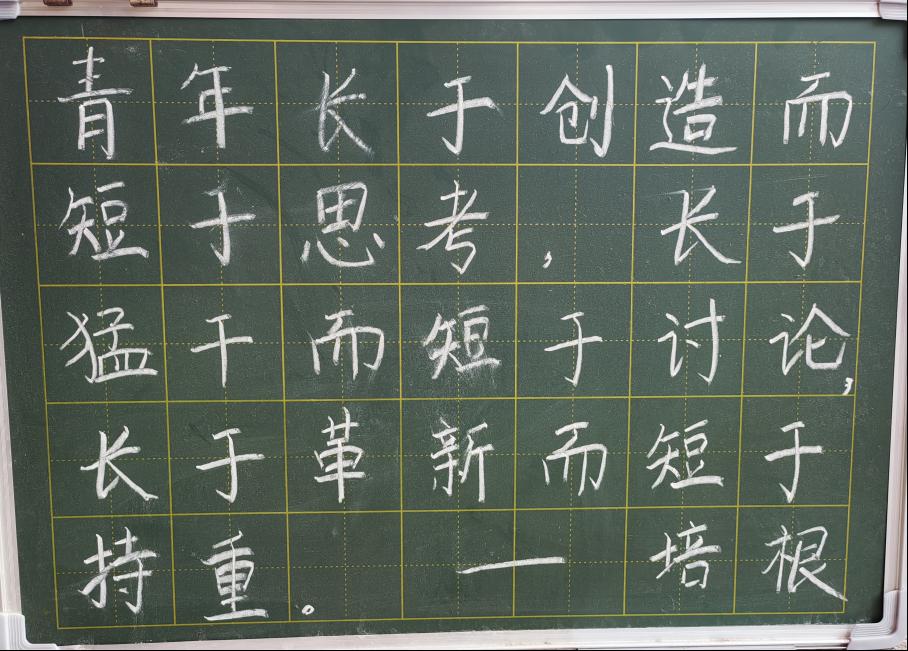 青年长于创造而
短于思考，长于
猛干而短于讨论，
长于革新而短于
持重。—培根